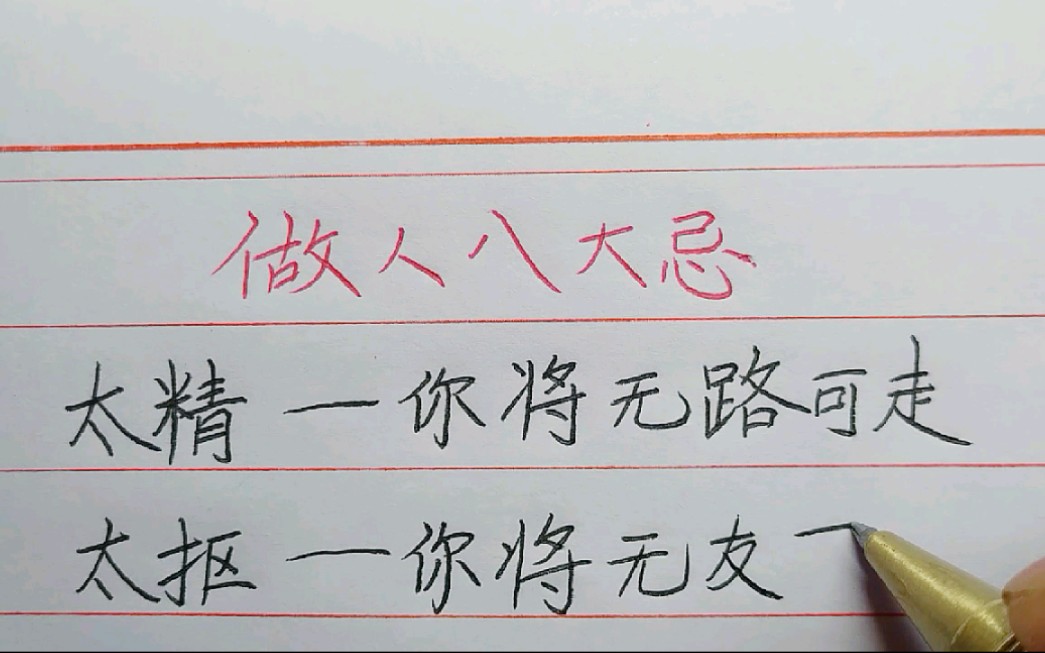 做人八大忌
太精一你将无路可走
太抠一你将无友